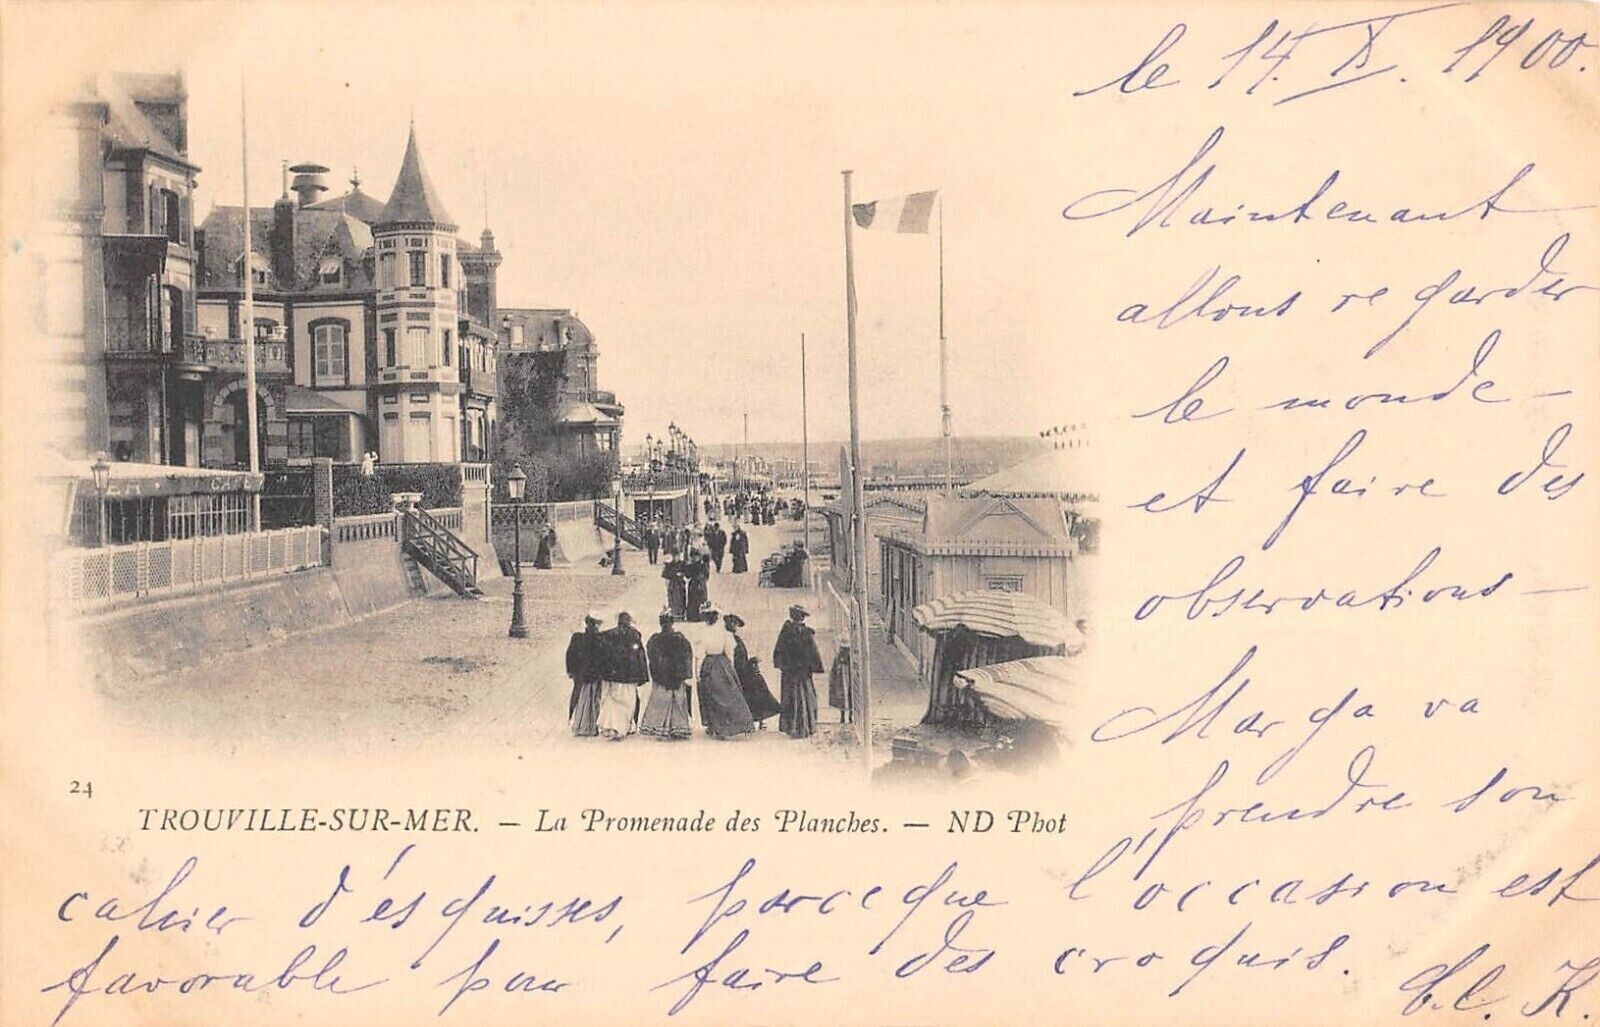 le 14. X. 1900.
Maintenant
allons regarder
le monde -
et faire des
observations -
Marga va
prendre son
24
TROUVILLE-SUR-MER. - La Promenade des Planches. - ND Phot
cahier d'ésquisses, parceque l'occasion est
favorable pour faire des croquis.
K.